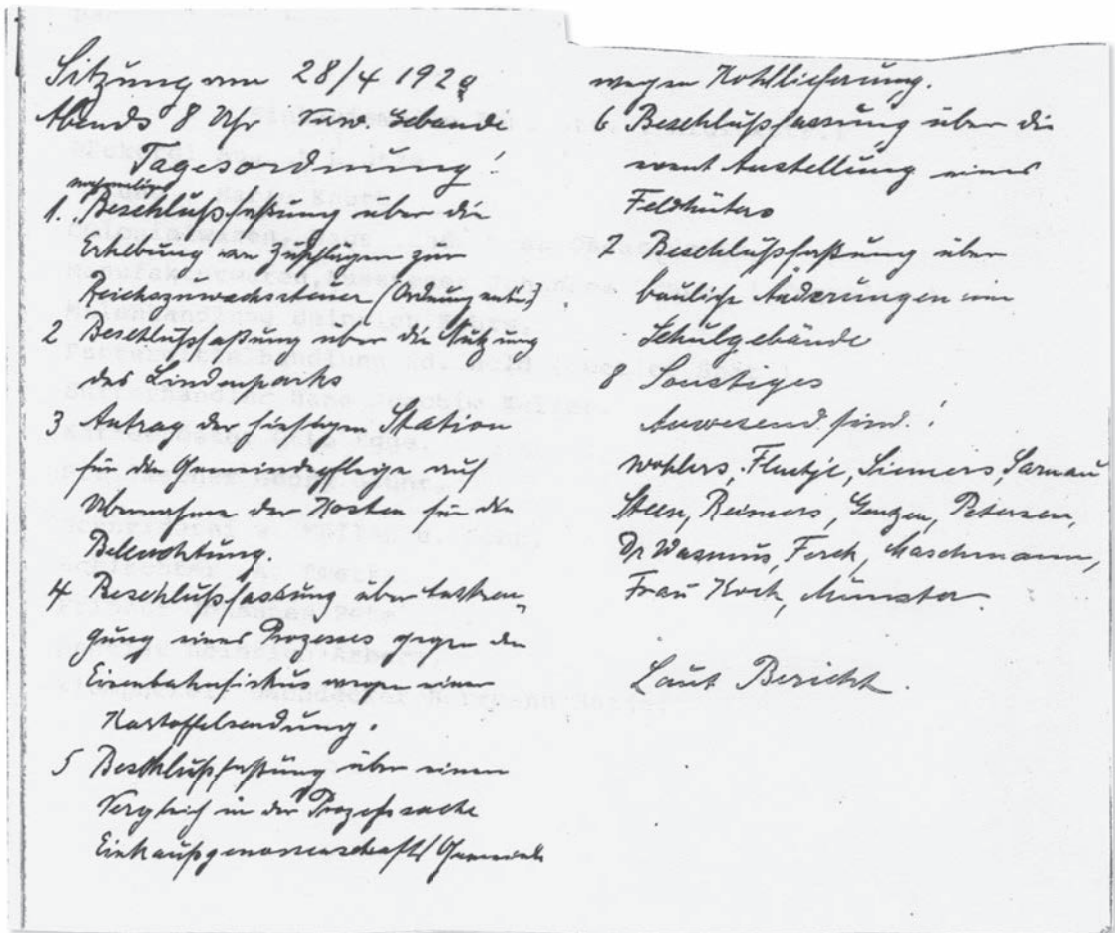 Sitzung am 28/4 192
Abends 8 Uhr Gebäude
Tagesordnung!
nochmalige
1. Beschlußfaßung über die
Erhebung von Zuschlägen zur
Reichszuwachssteuer (Ordnung
2 Beschlußfaßung über die Nutzung
des Lindenparks
3 Antrag der hiesigen Station
für die Gemeindepflege auf
Übernahme der Kosten für die
Beleuchtung.
4 Beschlußfassung über Anstren-
gung eines Prozesses gegen den
Eisenbahnfiskus wegen einer
Kartoffelsendung.
5 Beschlußfaßung über einen
Vergleich in der Prozeßsache
Einkaufsgenossenschaft/Gemeinde
wegen Kohllieferung.
6 Beschlußfassung über die
event Anstellung eines
Feldhüters
7 Beschlußfaßung über
bauliche Änderungen im
Schulgebäude
8 Sonstiges
Anwesend sind!
Wohlers, Siemers, Sarnau
Steen, Reimers, Petersen,
Dr Wasmus, Ferck, Maschmann,
Frau Koch, Münster.
Laut Bericht.